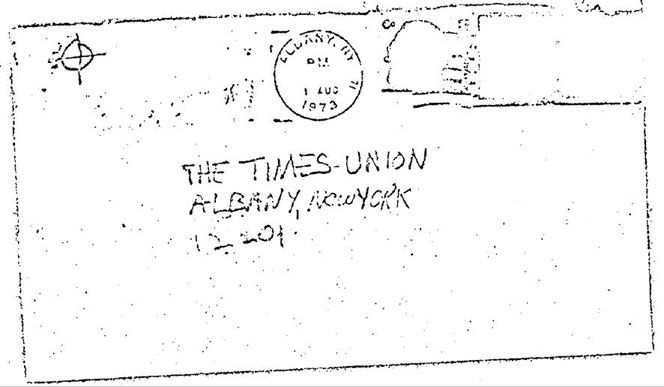 ALBANY, NY
PM
1 AUG
1973
THE TIMES-UNION
ALBANY, NEWYORK
12201